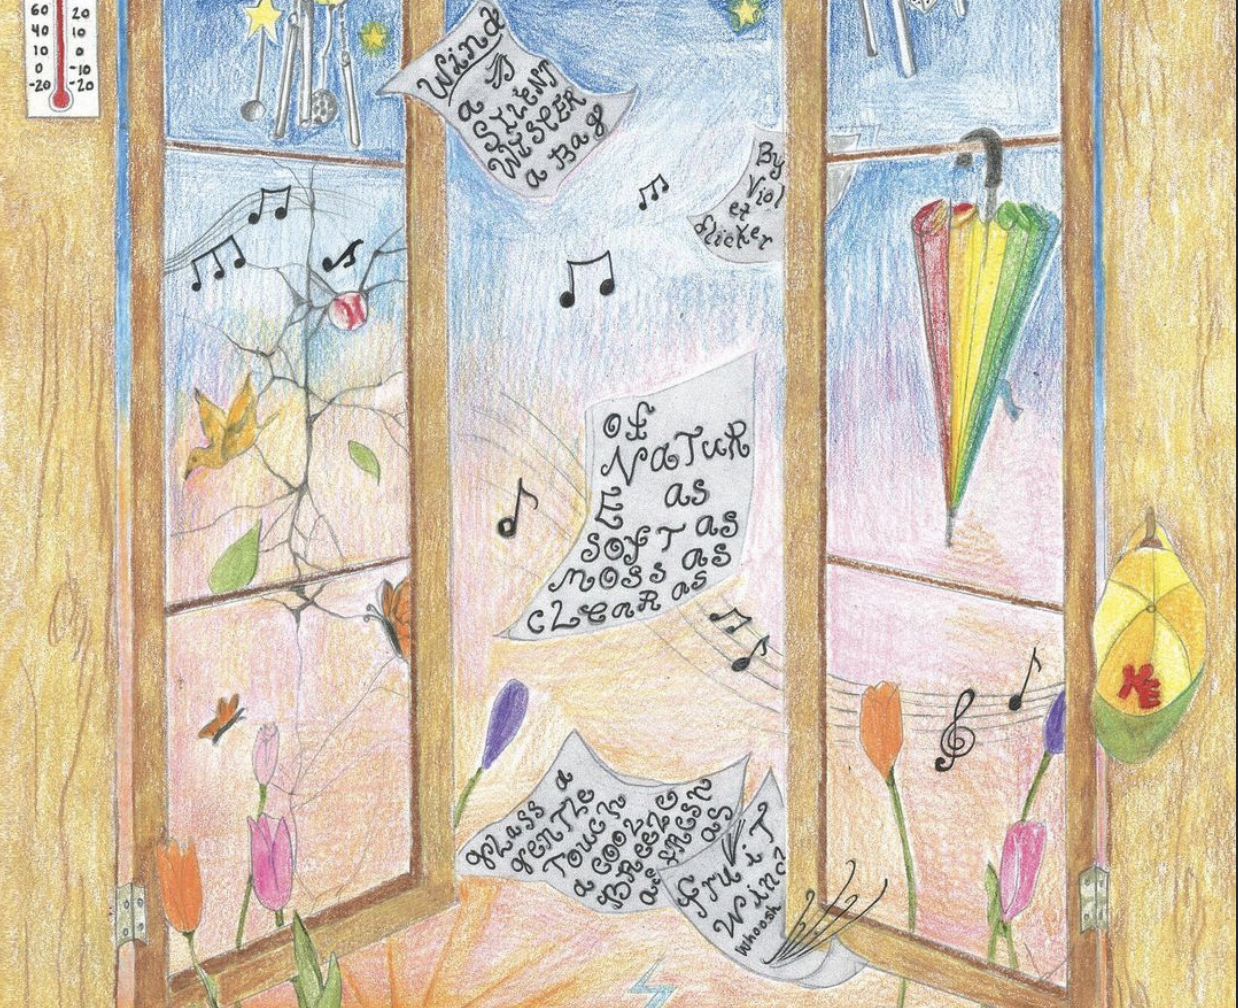 60 20
40 10
10 0
0 -10
-20 -20
Wind
a
SILENT
WISPER
a Bag
By
Viol
et
flicker
Of
NaTuR
E as
SOfT as
mOSS as
CLEaR as
glass a
genTle
Touch
a COOL
BREEZE
as fRESH
as
fruiT
Wind
whoosh
ME